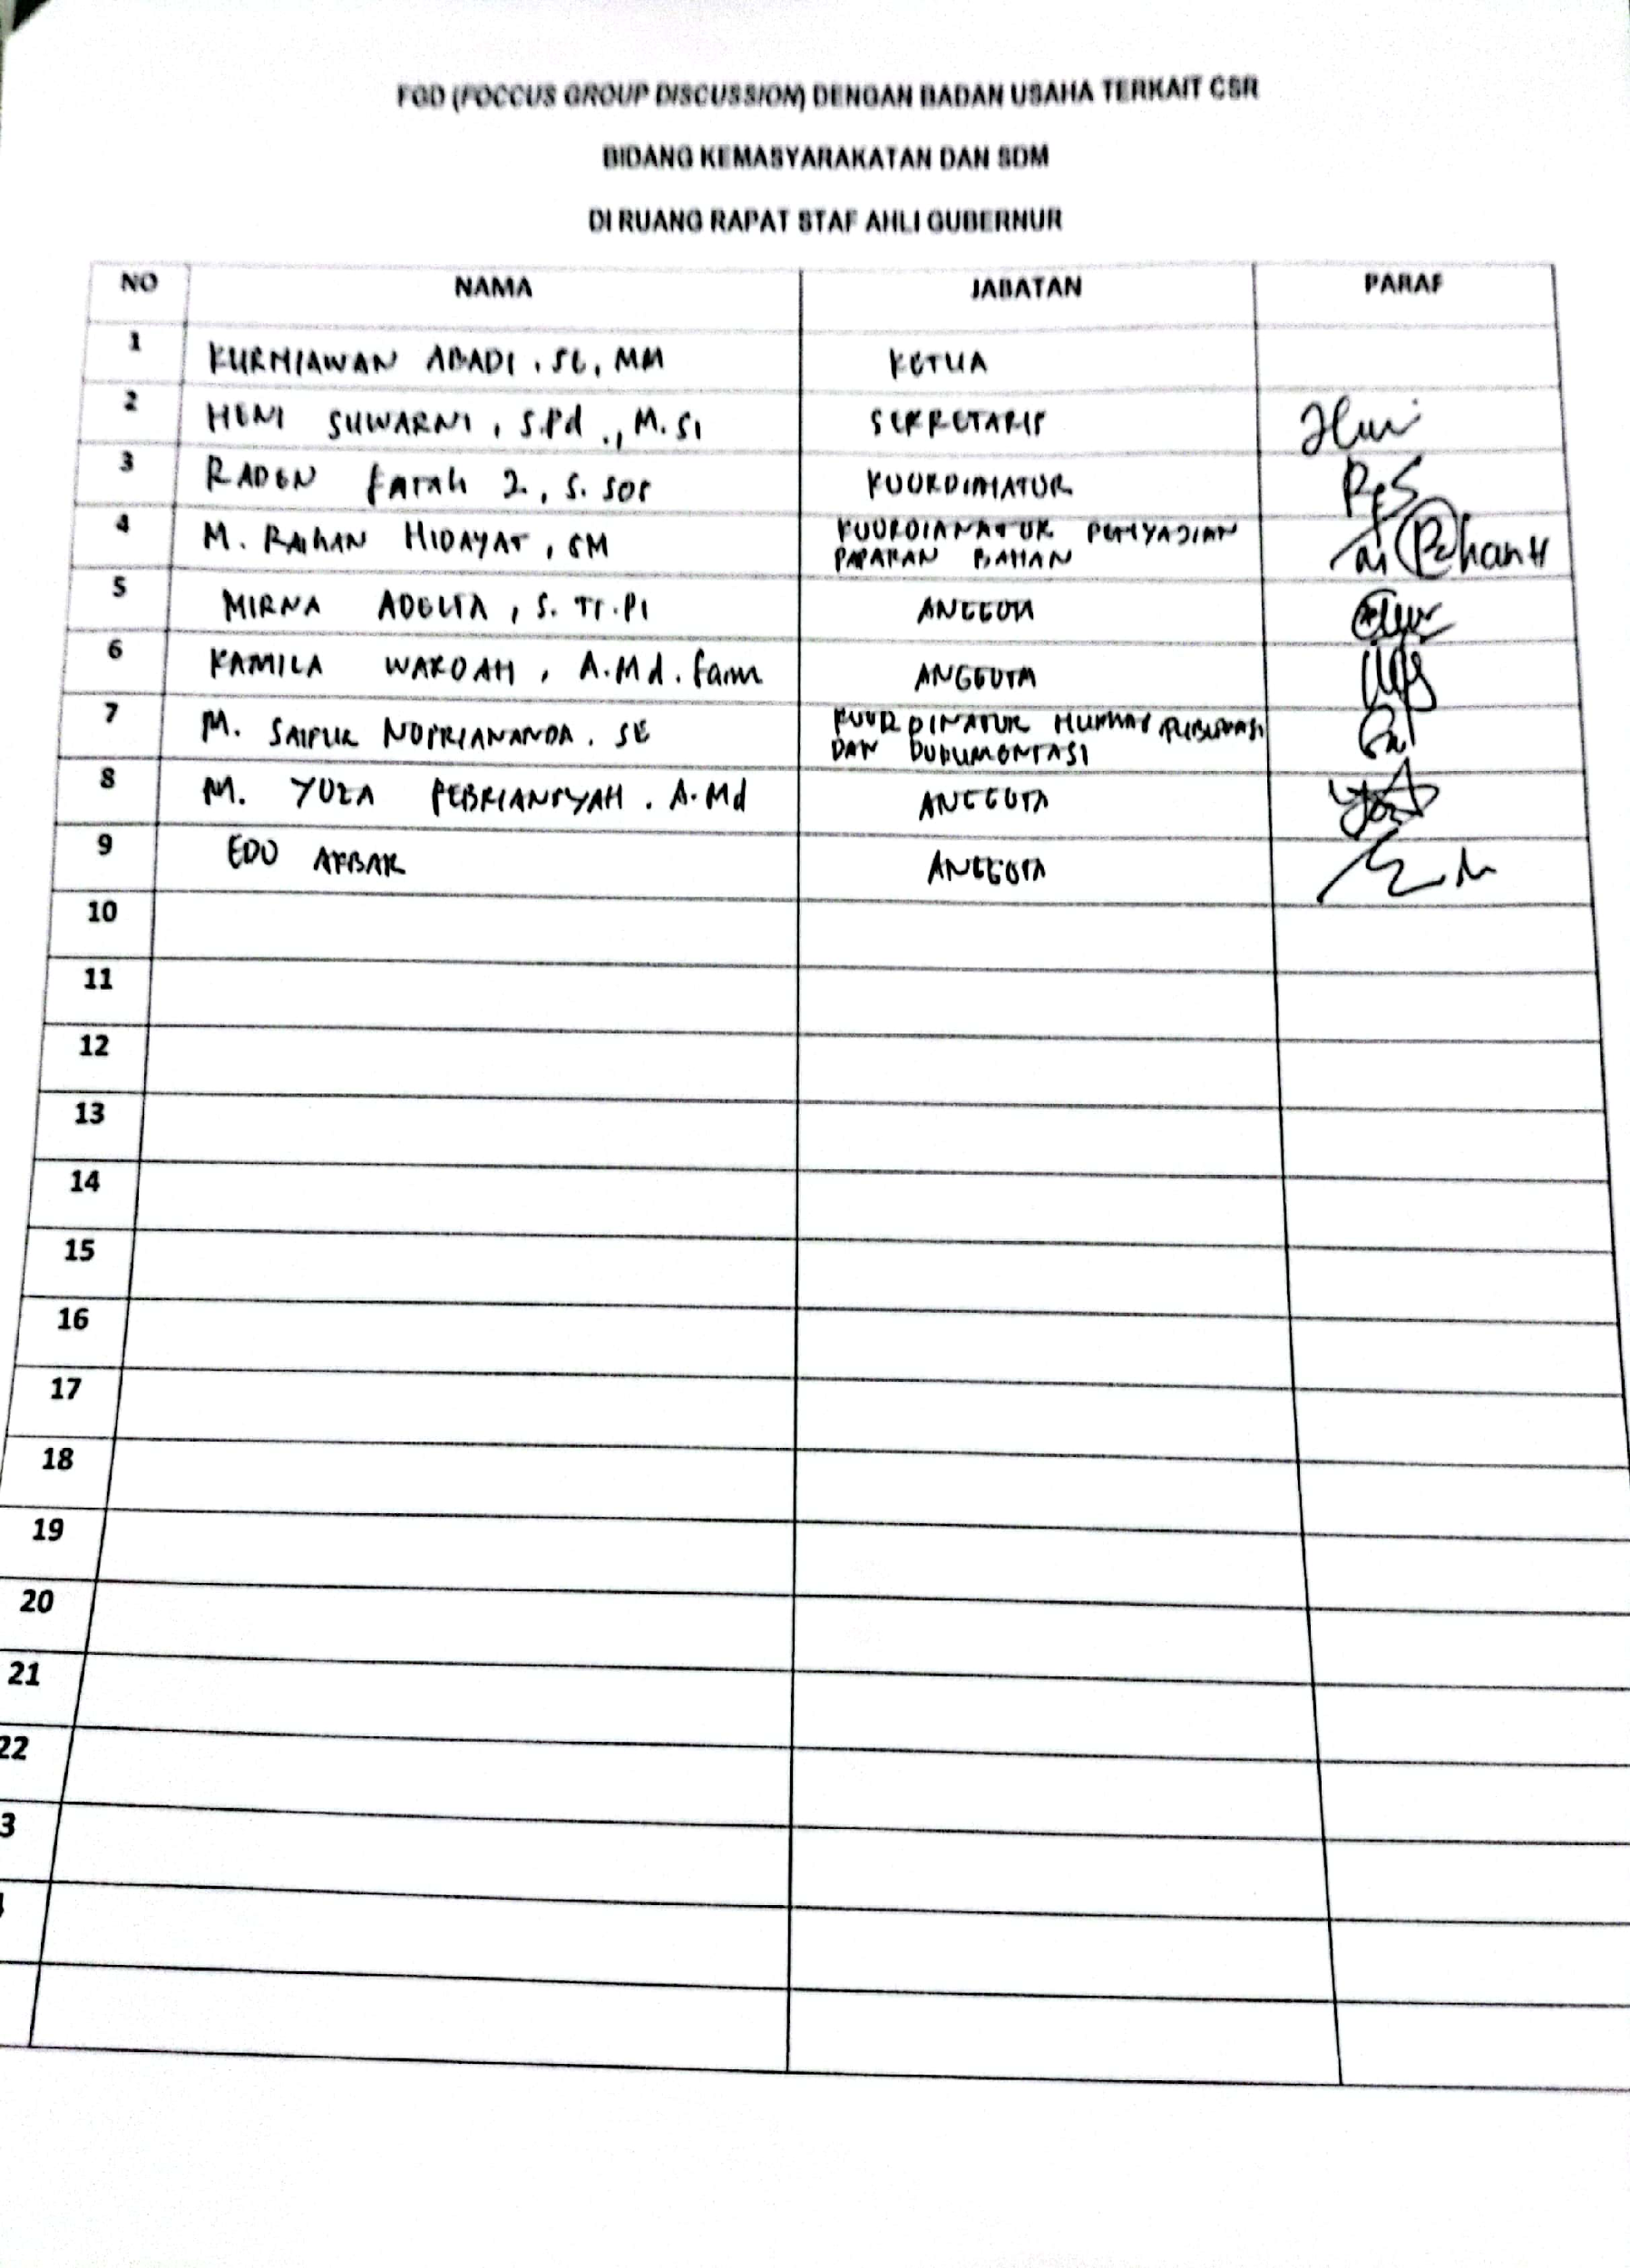 FGD (FOCCUS GROUP DISCUSSION) DENGAN BADAN USAHA TERKAIT CSR
BIDANG KEMASYARAKATAN DAN SDM
DI RUANG RAPAT STAF AHLI GUBERNUR
NO NAMA JABATAN PARAF
1 KURNIAWAN ABADI, SE, MM KETUA
2 HENI SUWARNI, S.Pd., M.Si SEKRETARIS
3 RADEN Fatah 2., S. Sos KOORDINATOR
4 M. Raihan HIDAYAT, SM KOORDIANATOR PENYAJIAN
PAPARAN BAHAN
5 MIRNA ADELIA, S. Tr. Pi ANGGOTA
6 KAMILA WARDAH, A.Md. Farm ANGGOTA
7 M. SAIPUR NOPRIANANDA. SE KOORDINATOR HUMAS PUBLIKASI
DAN DOKUMENTASI
8 M. YUZA PEBRIANSYAH. A.Md ANGGOTA
9 EDO AKBAR ANGGOTA
10
11
12
13
14
15
16
17
18
19
20
21
22
3